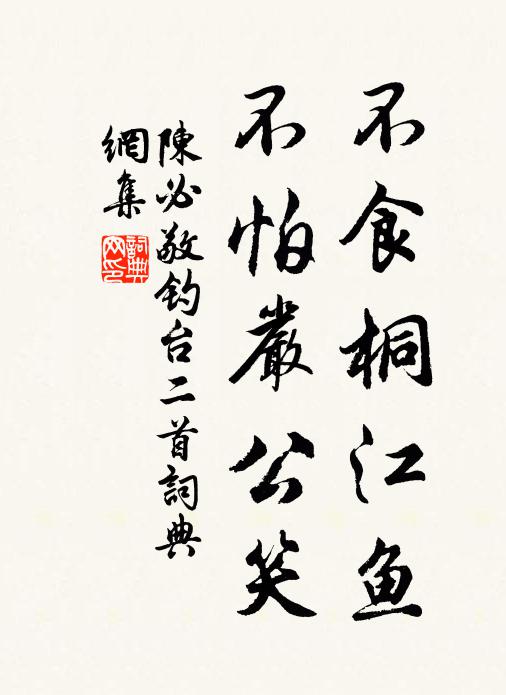 不食桐江鱼
不怕嚴公笑
陳必敬钓台二首詞典
網集
詞典
网印